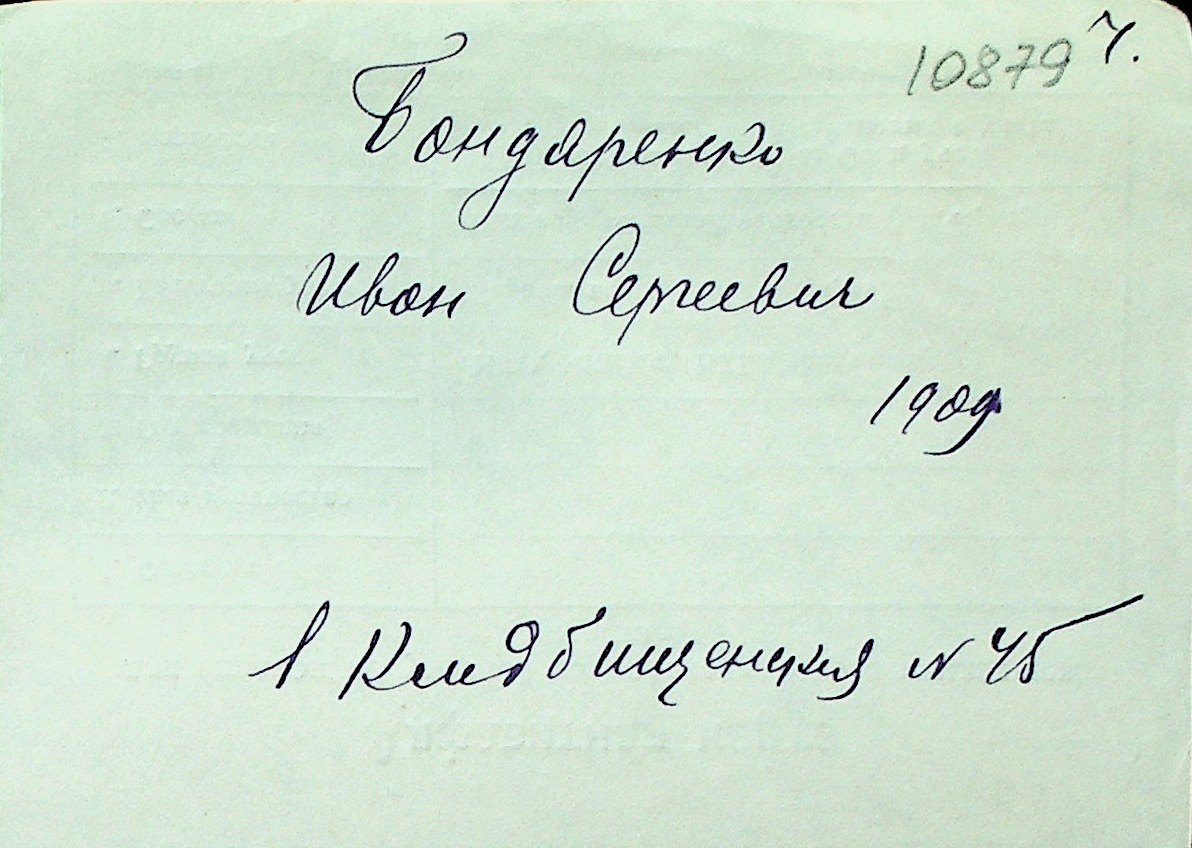 10879 ч.
Бондаренко
Иван Сергеевич
1909
1 Кладбищенская N 45